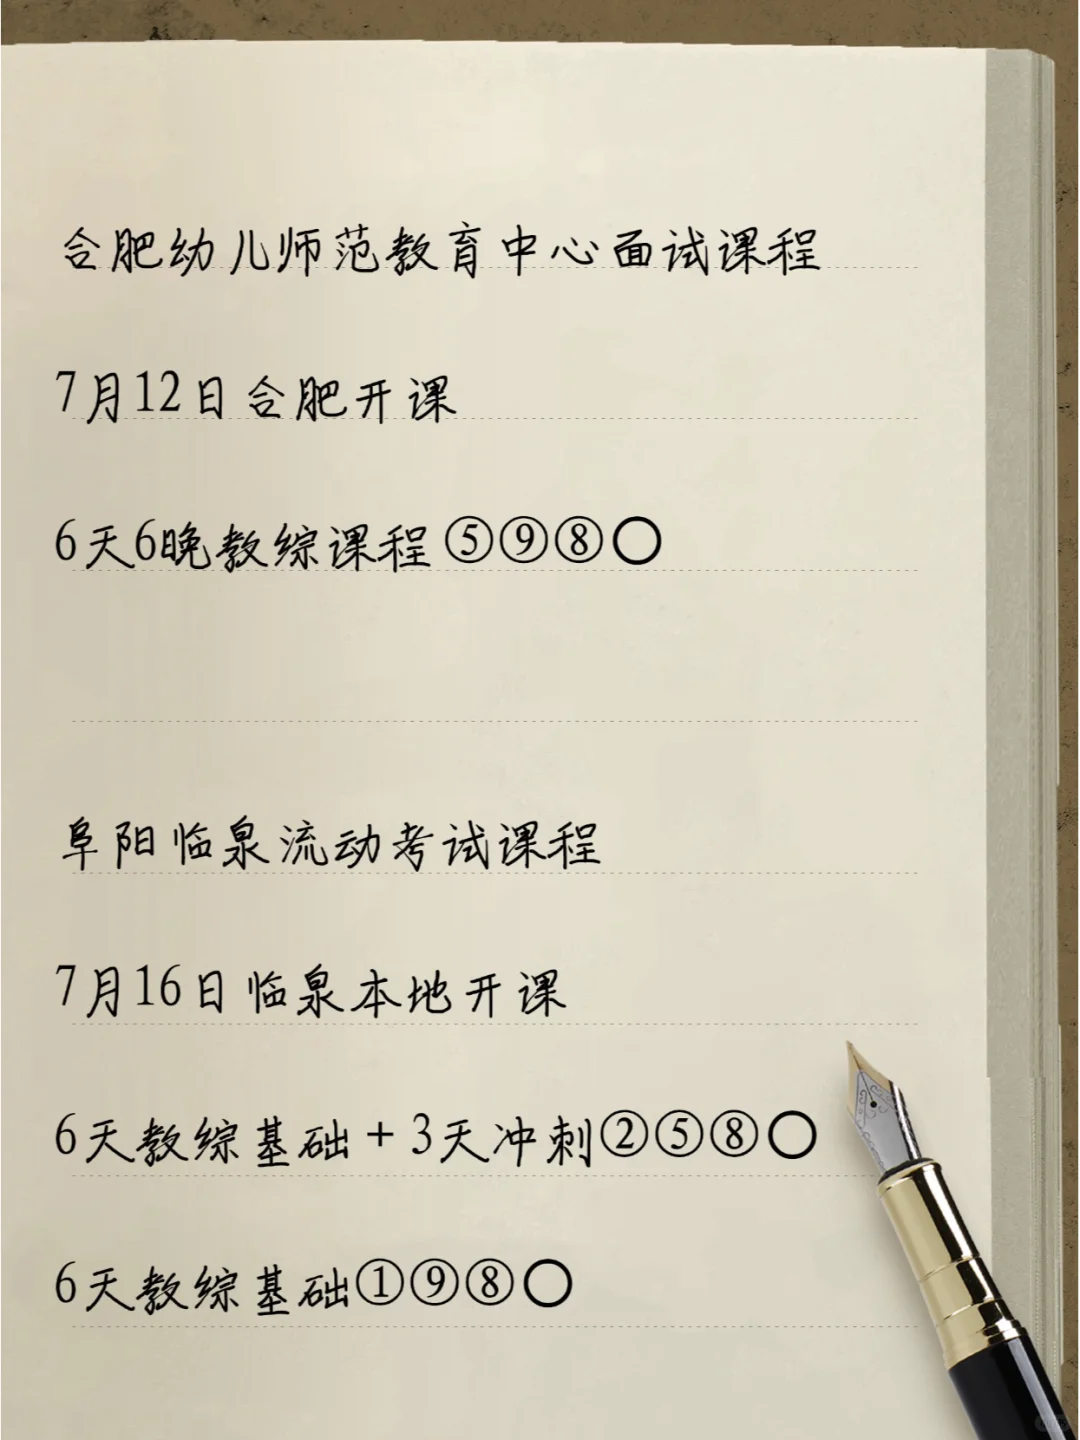 合肥幼儿师范教育中心面试课程
7月12日合肥开课
6天6晚教综课程 ⑤⑨⑧〇
阜阳临泉流动考试课程
7月16日临泉本地开课
6天教综基础 + 3天冲刺②⑤⑧〇
6天教综基础①⑨⑧〇